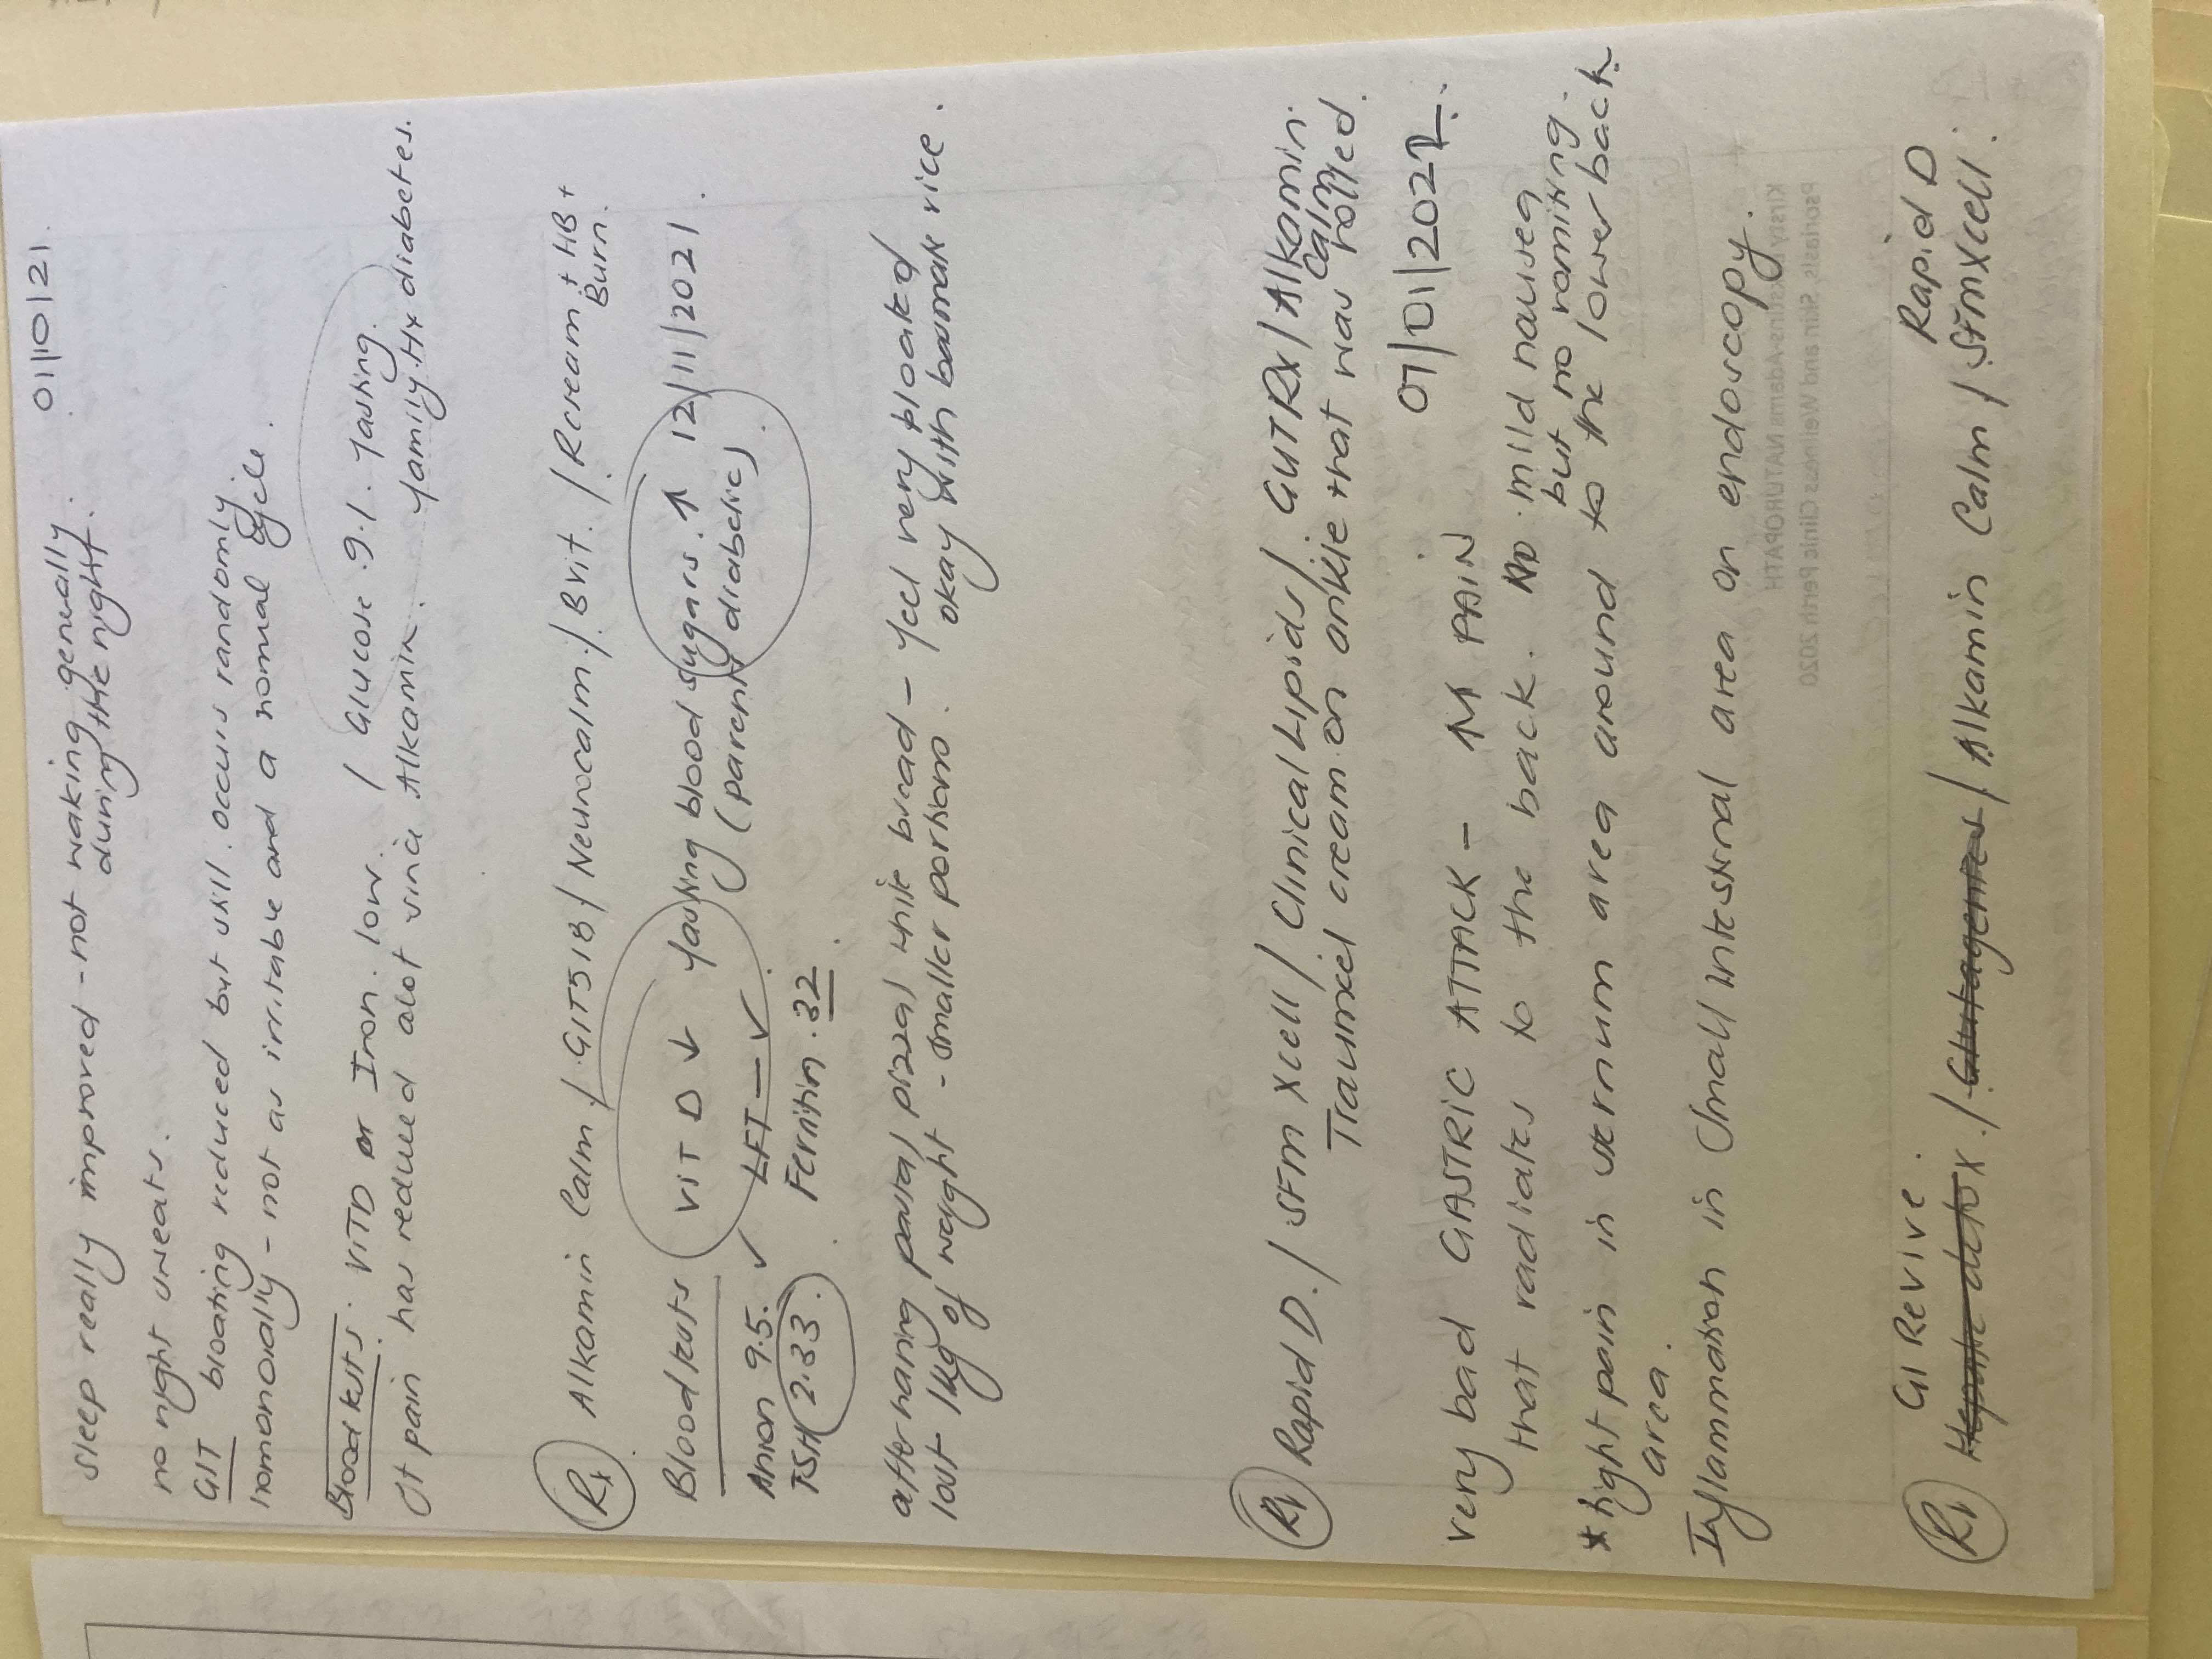 01/10/21.
sleep really improved - not waking generally.
during the night.
no night sweats.
GIT bloating reduced but still occurs randomly.
hormonally - not as irritable and a normal cycle.
Blood tests. VIT D or Iron. low. / Glucose 9.1. fasting.
Jt pain has reduced alot since Alkamin. family Hx diabetes.
Rx Alkamin Calm / GITS18 / Neurocalm / Bvit. / Rcream + HB +
Burn.
Blood tests VIT D ↓ fasting blood sugars. ↑ 12/11/2021.
(parents diabetic)
Anion 9.5. ✓ LFT — ✓
TSH 2.33. Ferritin. 32
after having pasta / pizza / white bread - feel very bloated
lost 1kg of weight - smaller portions. okay with basmati rice.
Rx Rapid D. / SFM Xcell / Clinical Lipids / GUT Rx / Alkamin
Calm
Traumeel cream on ankle that was rolled.
07/01/2022.
very bad GASTRIC ATTACK - ↑↑ PAIN
that radiates to the back. No mild nausea
but no vomiting.
* tight pain in sternum area around to the lower back
area.
Inflammation in Small intestinal area on endoscopy.
GI Revive. Rapid D
Rx Hepatic detox. / Glutagenics / Alkamin Calm / SFMXcell.
Psoriasis, Skin and Wellness Clinic Perth 2020
NATUROPATH